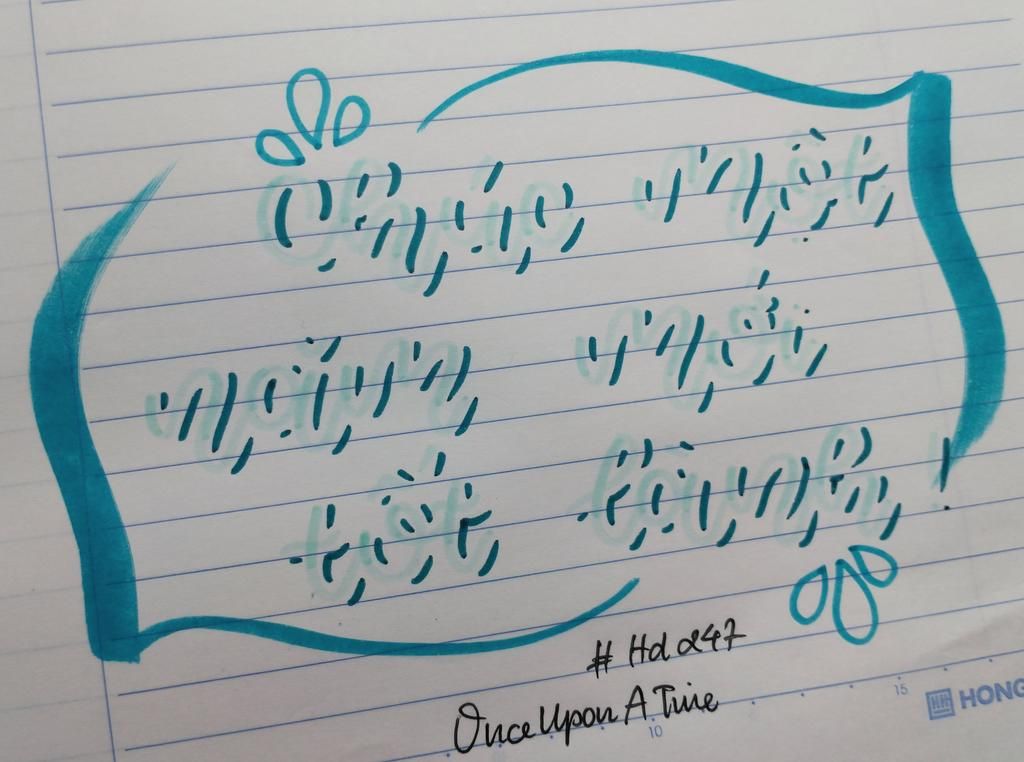 Chúc một
năm mới
tốt lành !
# Hd 247
Once Upon A Time
15
10
HONG